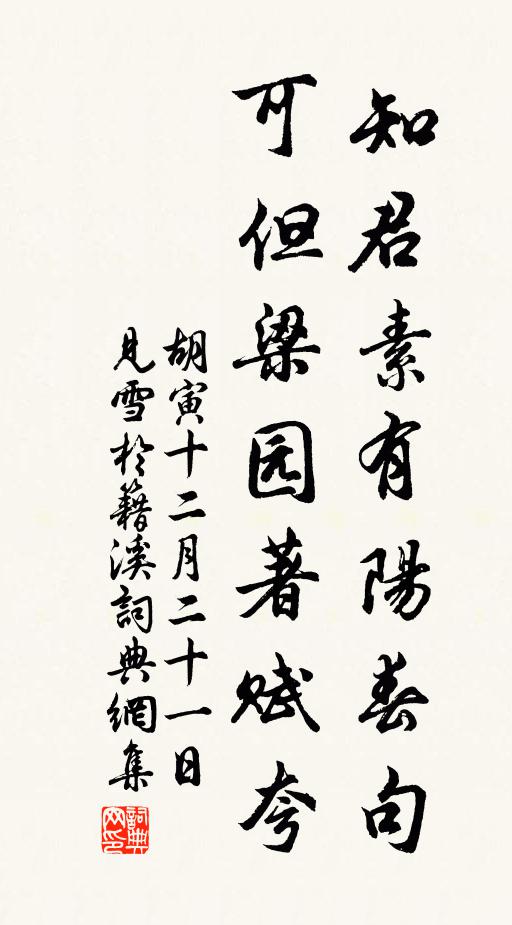 知君素有陽春句
可但梁园著赋夸
胡寅十二月二十一日
見雪於籍溪詞典網集
詞典
网印